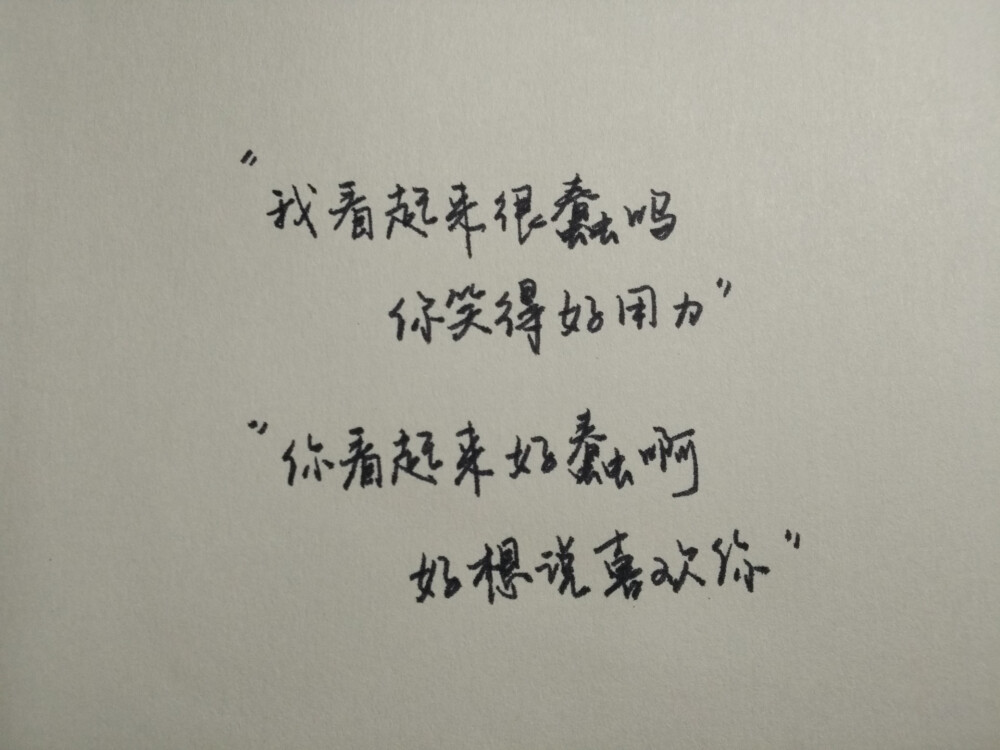 "我看起来很蠢吗
你笑得好用力"
"你看起来好蠢啊
好想说喜欢你"